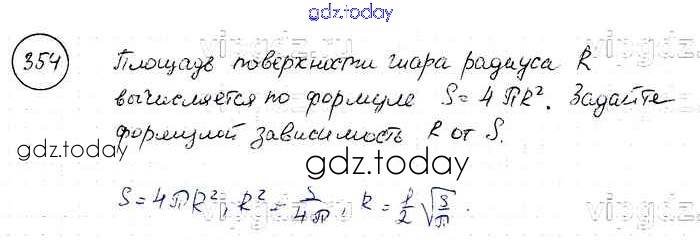 gdz.today
354
Площадь поверхности шара радиуса R
вычисляется по формуле S = 4πR². Задайте
формулой зависимость R от S.
gdz.today
gdz.today
S = 4πR², R² = S/4π, R = 1/2 √(S/π).